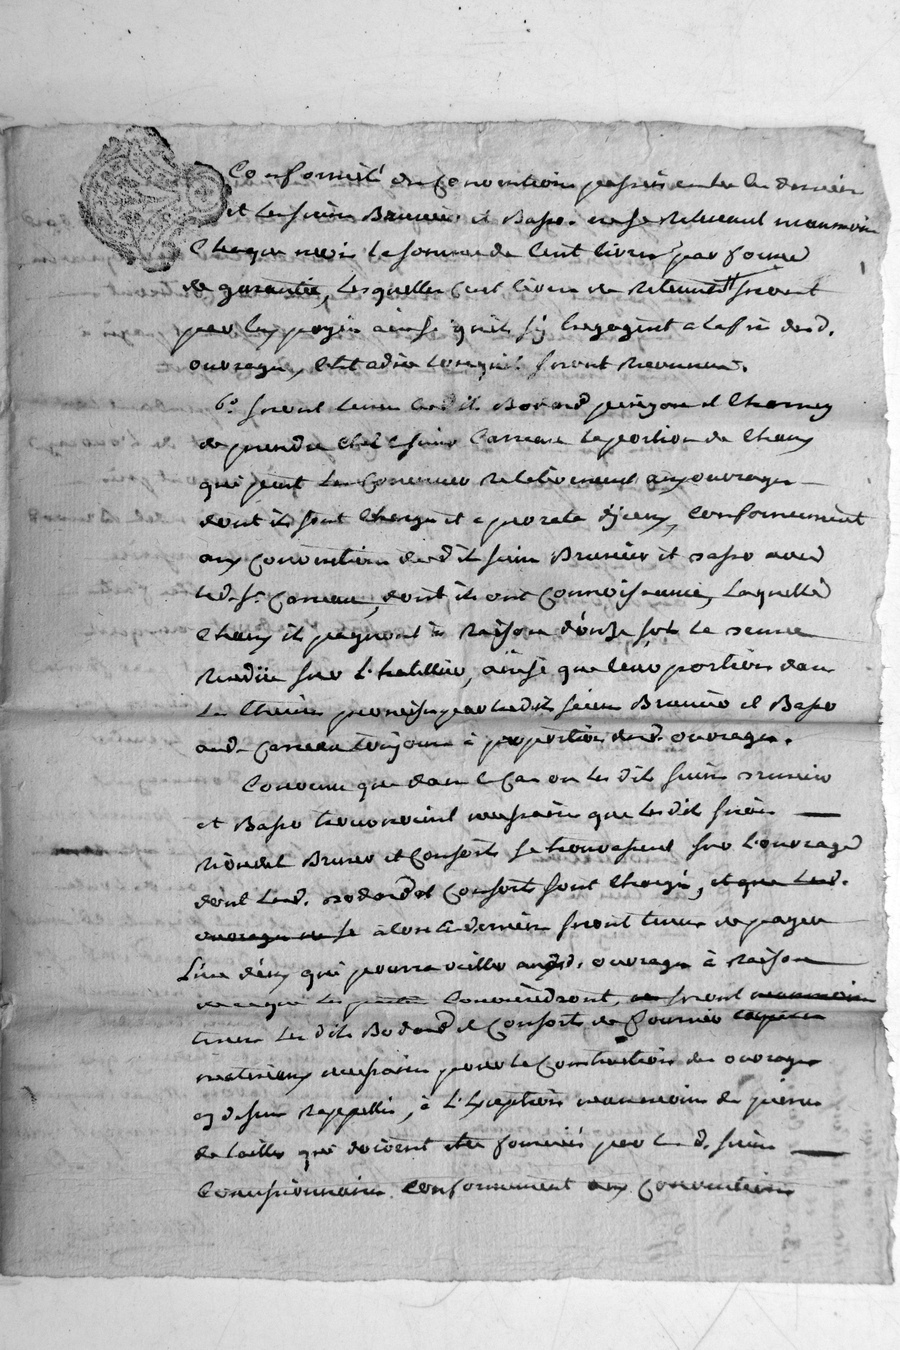 Conformité des Conventions passées entre les derniers
et les sieurs Brunier et Basso. en se Retenant neanmoins
Chaque mois la somme de Cent livres par forme
de garantie, Lesquelles Cent livres de Retenues seront
par eux payés ainsi qu'ils s'y engagent a la fin desd.
ouvrages, C'est adire Lorsqu'ils seront Reconnus.
6.o seront tenus lesdits Bodard et Charney
de prendre chez le sieur Carreau la portion de Chaux
qui peut les Concerner Relativement aux ouvrages
dont ils sont Chargés et a prorata d'jceux, Conformement
aux Conventions desdits sieurs Brunier et Basso avec
led. Sr. Carreau, dont ils ont Connoissance, Laquelle
Chaux ils payeront à Raison d'onze sols le
Rendüe sur L'hatellier, ainsi que leur portion dans
par lesdits sieurs Brunier et Basso
aud. Carreau toujours à proportion desd. ouvrages.
Convenu que dans le Cas ou les dits sieurs Brunier
et Basso trouveroient necessaire que les dits sieurs
Brunes et Consorts se trouvassent sur L'ouvrage
dont Lesd. Bodard et Consorts sont Chargés, et que Lesd.
ouvrages alors ces derniers seront tenus de payer
L'un d'eux qui pourra veiller auxd. ouvrages à Raison
de ce que les Conviendront, seront neanmoins
tenus Les dits Bodard et Consorts de fournir
materiaux necessaires pour la Construction des ouvrages
cy dessus Rappellés, à L'Exception neanmoins des pierres
de taille qui doivent etre fournies par Lesd. sieurs
Conformement aux Conventions